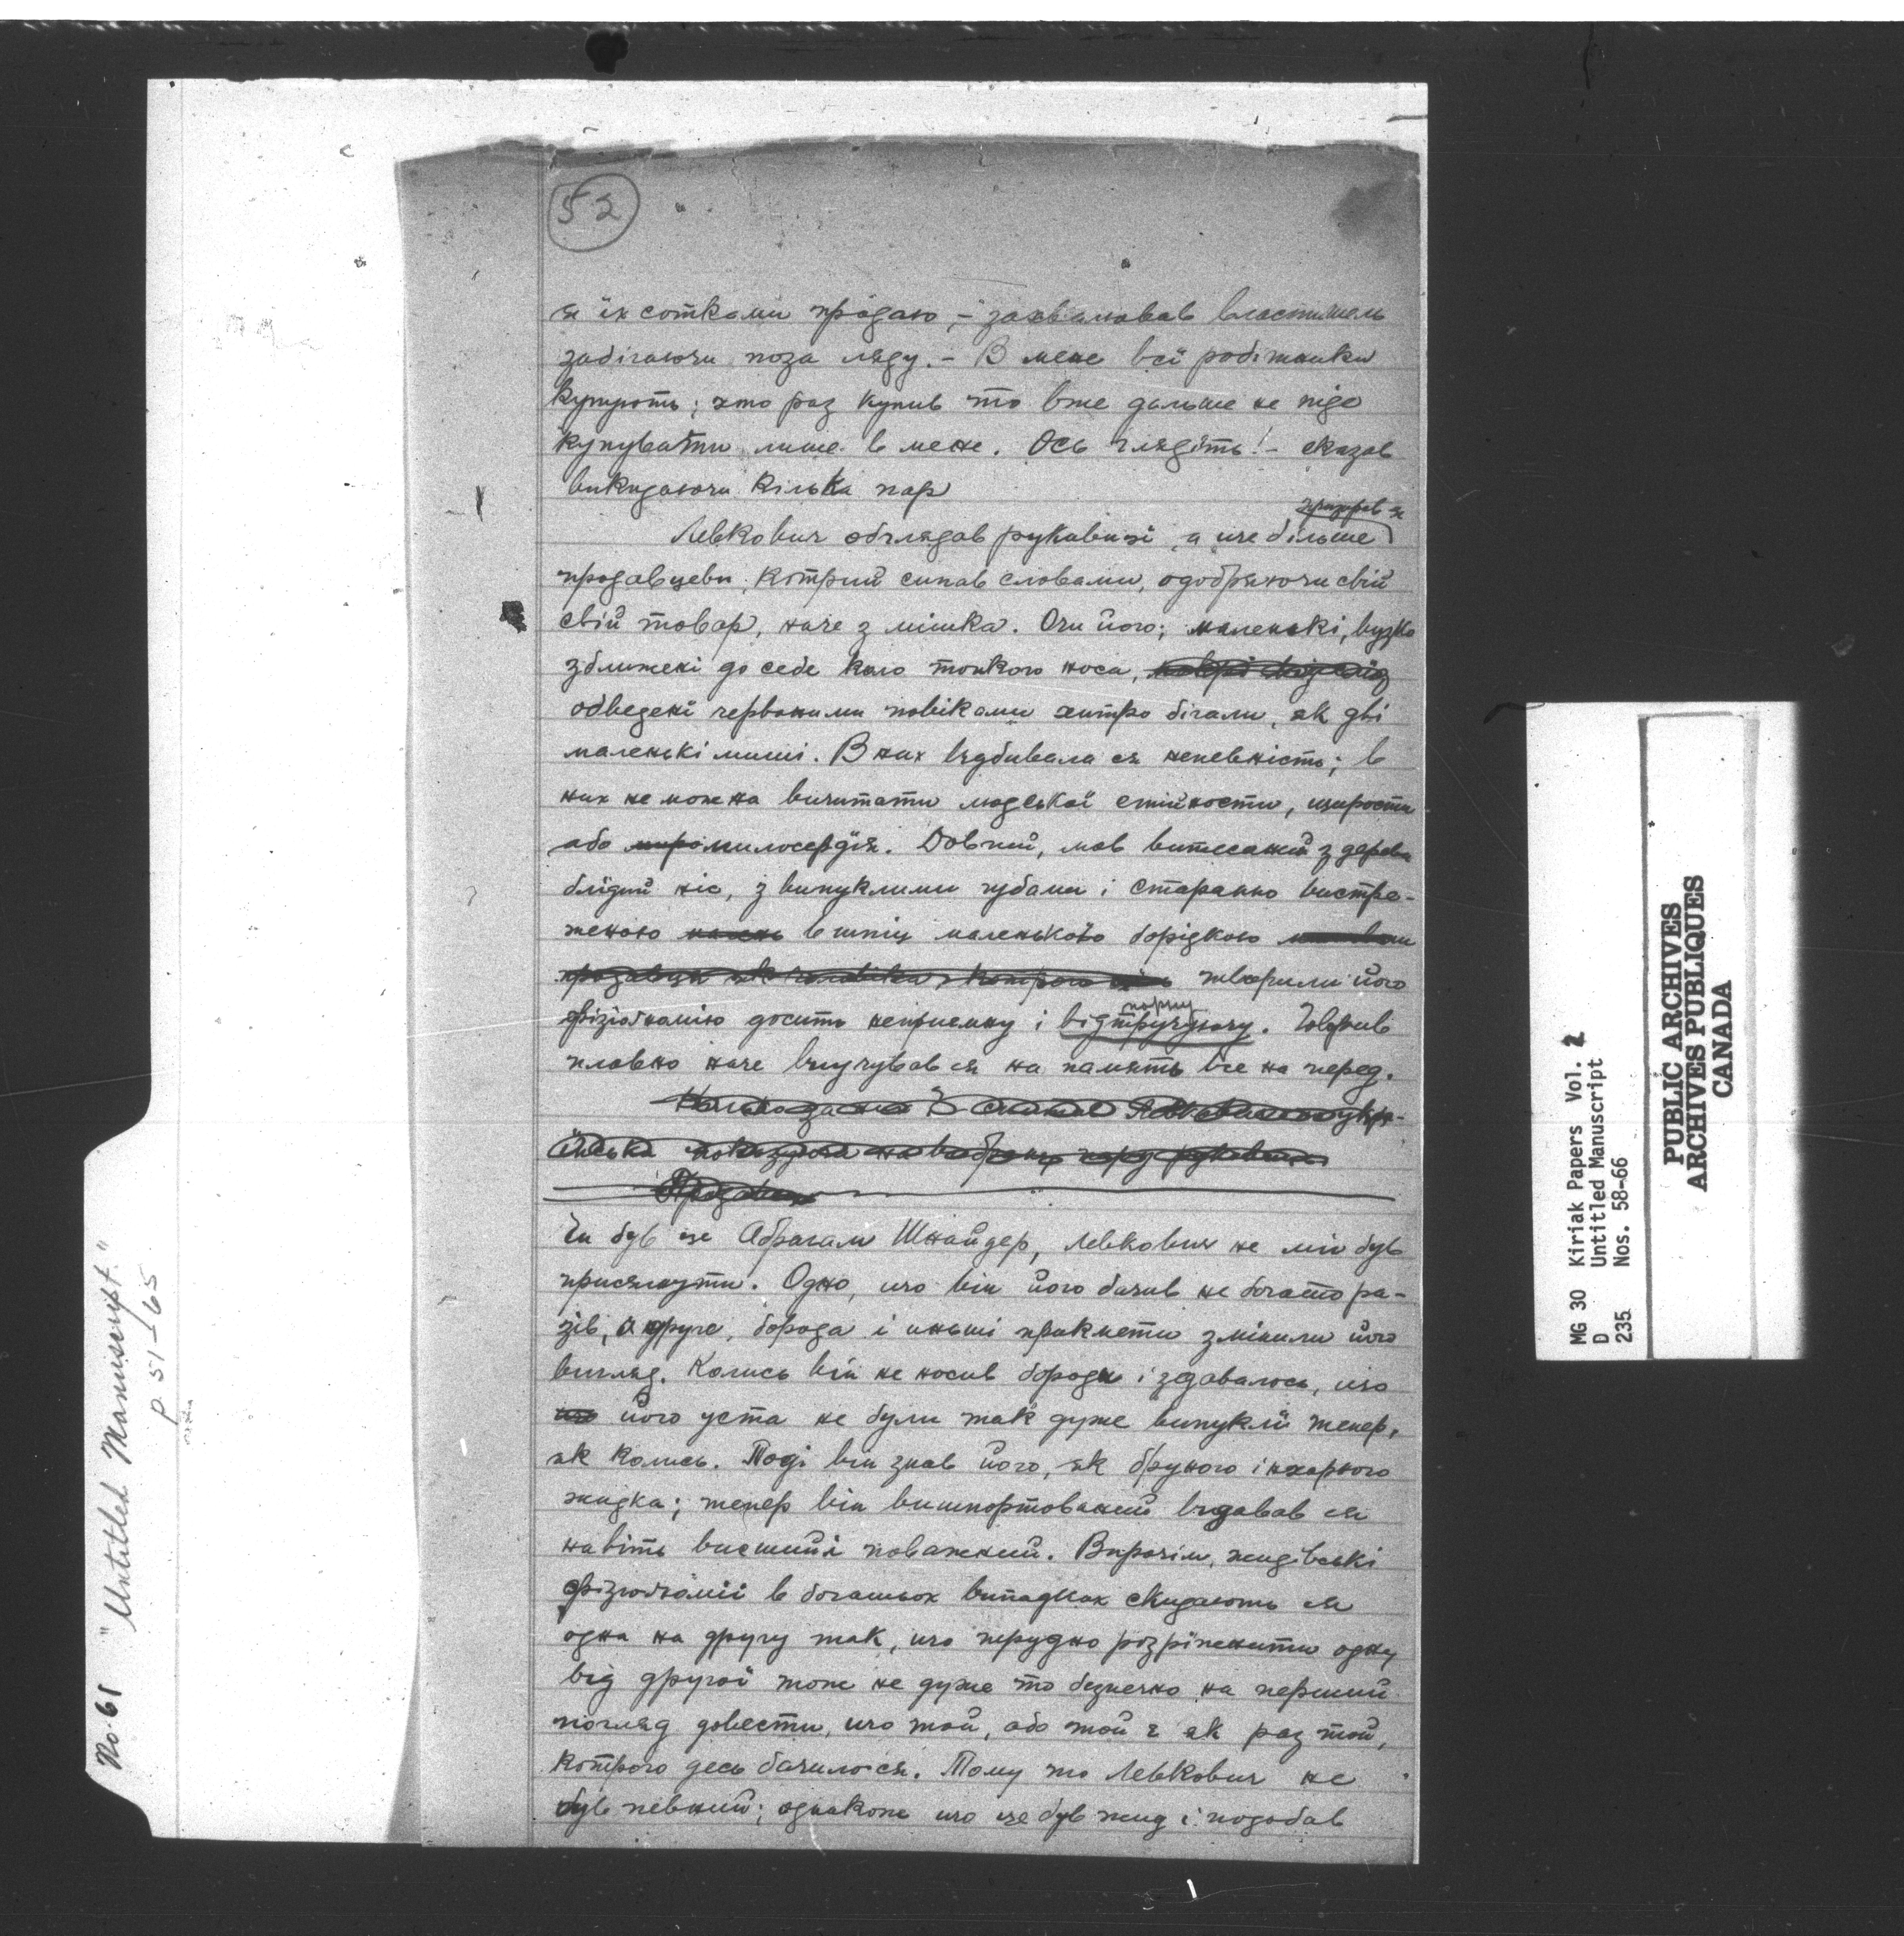 52
я їх сотками продаю, – захвалював властитель
забігаючи поза ляду. – В мене всї робітники
купують; хто раз купив то вже дальше не піде
купувати лише в мене. Ось глядїть! – сказав
викидаючи кілька пар
Левкович обглядав рукавицї а ще більше
продавцеви, котрий сипав словами, одобряючи свій
свій товар, наче з мішка. Очи його; маленькі, вузко
зближені до себе коло тонкого носа,
обведені червоними повіками хитро бігали, як дві
маленькі миші. В них відбивала ся непевність; в
них не можна вичитати людської стійности, щирости
або милосердія. Довгий, мов витесаний з дерева
блїдий ніс, з випуклими губами і старанно вистри-
женою в шпіц маленькою борідкою
творили його
фізіогномію досить неприємну і відтручуючу. Говорив
плавно наче вчував ся на память все на перед.
Чи був це Абрагам Шнайдер, Левкович не міг був
присягнути. Одно, що він його бачив не богато ра-
зів, а друге, борода і иньші прикмети змінили його
вигляд. Колись він не носив бороди і здавалось, що
його уста не були так дуже випуклі тепер,
як колись. Тодї він знав його, як брудного і нехарного
жидка; тепер він вишпортований видавав ся
навіть висший і поважний. Впрочім, жидівські
фізіогномії в богатьох випадках скидають ся
одна на другу так, що трудно розріжнити одну
від другої тож не дуже то безпечно на перший
погляд довести, що той, або той є як раз той,
котрого десь бачилося. Тому то Левкович не
був певний; однакож що це був жид і подобав
No. 61 "Untitled Manuscript."
p. 51–65
MG 30 Kiriak Papers Vol. 2
D Untitled Manuscript
235 Nos. 58-66
PUBLIC ARCHIVES
ARCHIVES PUBLIQUES
CANADA